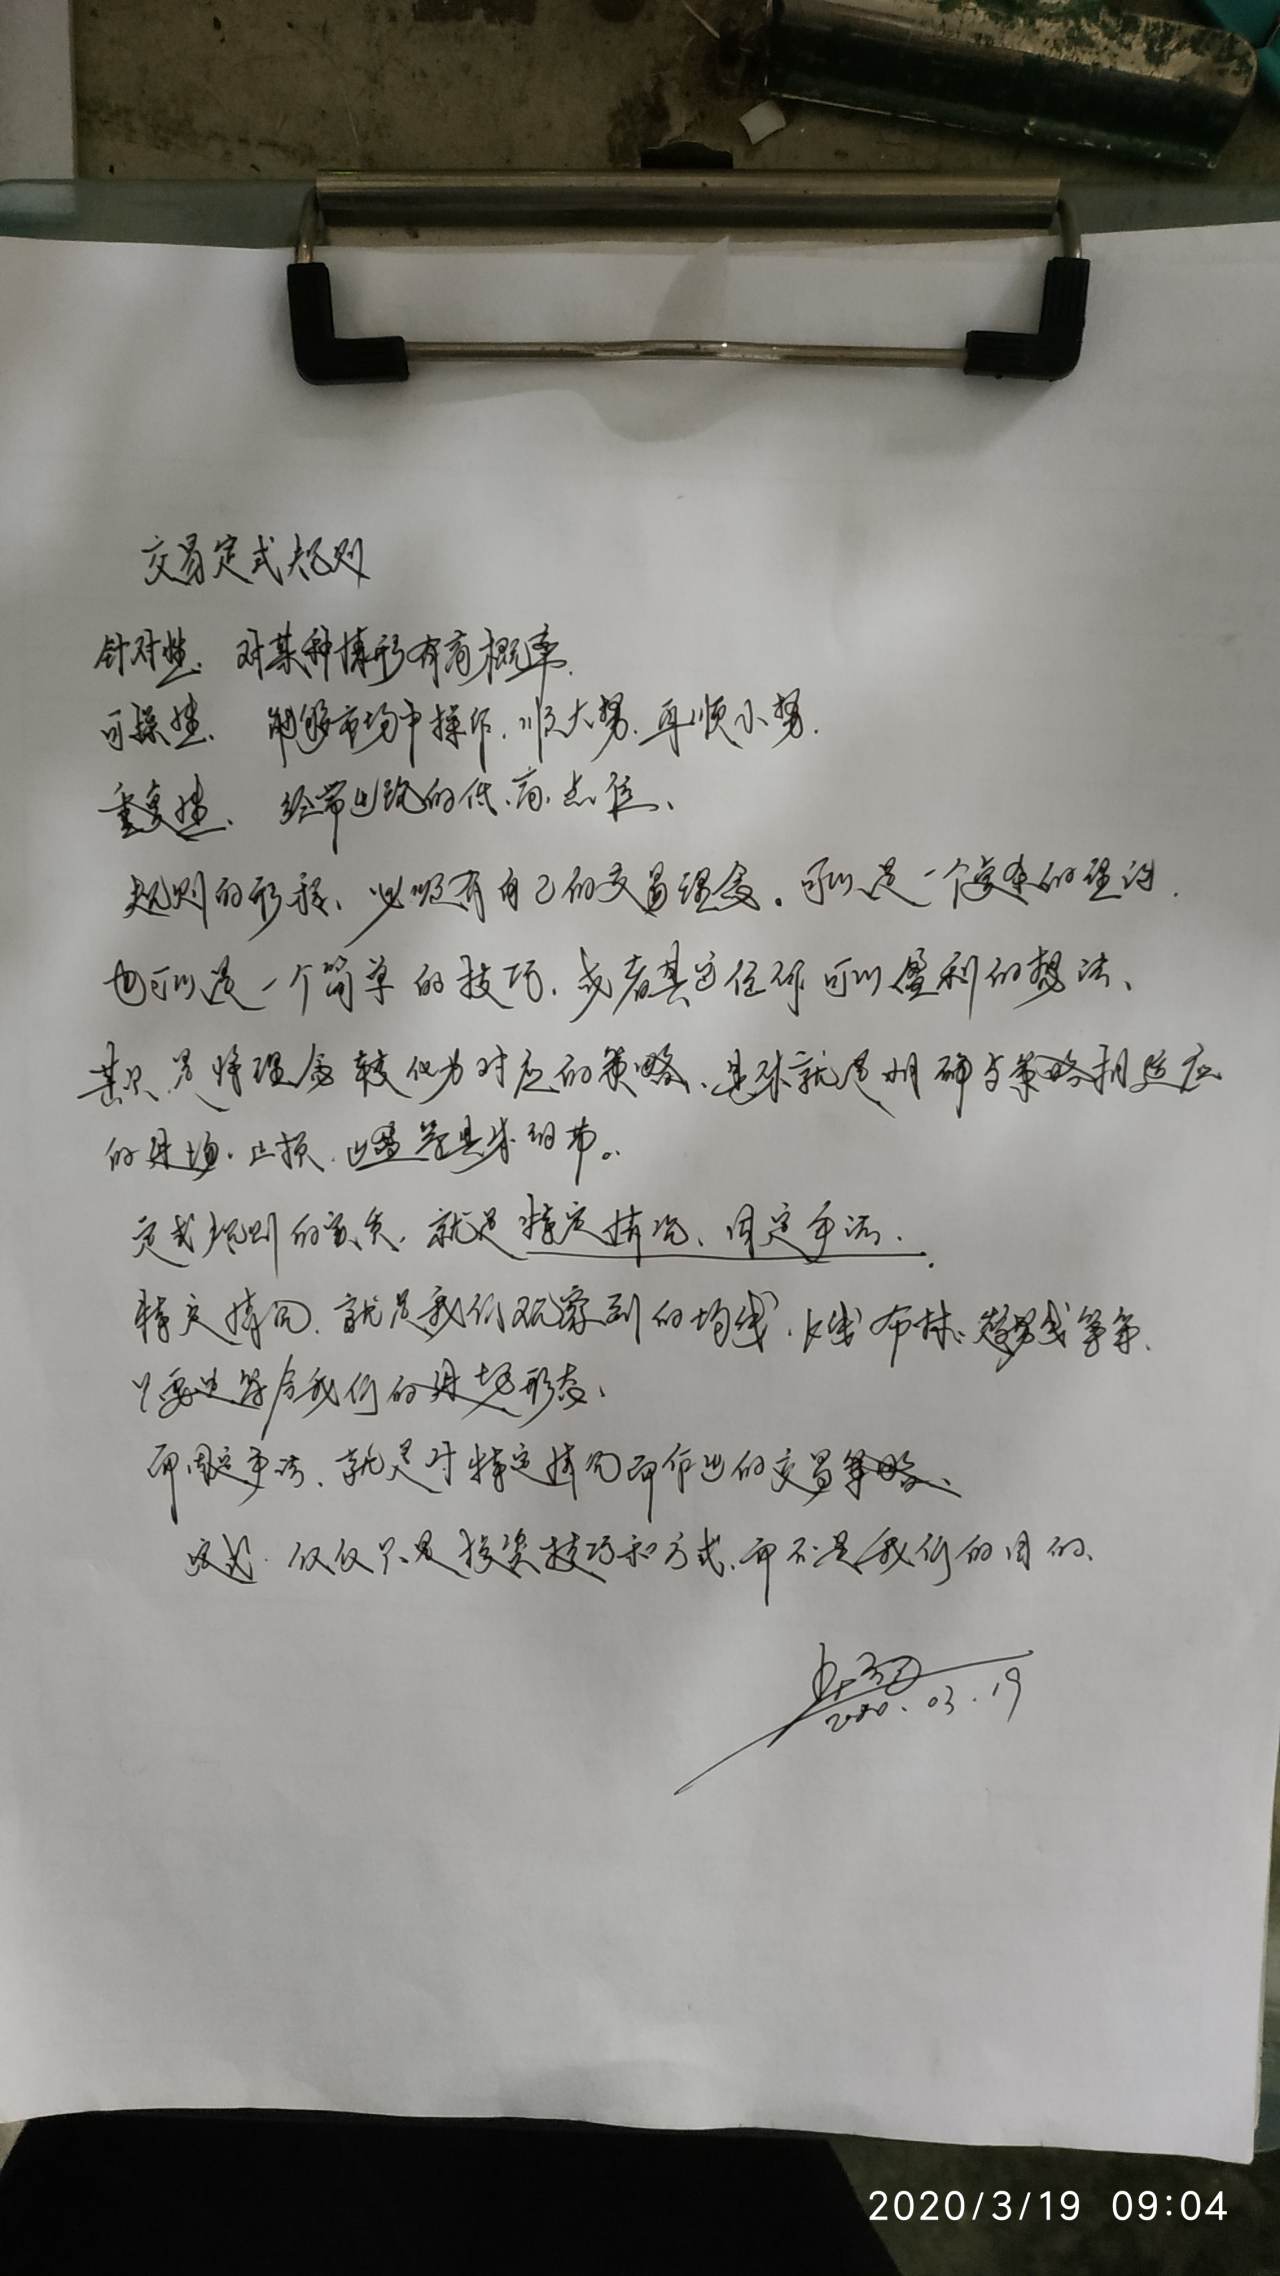 交易定式规则
针对性、对某种情形有高概率.
可操性、能够市场中操作.顺大势.再顺小势.
重复性、经常出现的低.高.点位、
规则的形程、必须有自己的交易理念。可以是一个复杂的理论.
也可以是一个简单的技巧.或者其它任何可以盈利的想法、
其次是将理念转化为对应的策略、具体就是明确与策略相适应
的进场.止损.止盈等具体细节。
定式规则的实质.就是特定情况、固定手法.
特定情向、就是我们观察到的均线、K线 布林、趋势线等等.
只要是符合我们的进场形态、
而固定手法、就是对特定情向而作出的交易策略、
定式.仅仅只是投资技巧和方式、而不是我们的目的、
2020.03.19
2020/3/19 09:04